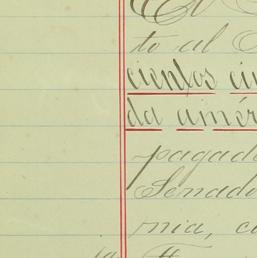 to al
cientos cin
da amér
pagado
Senado
nia, co